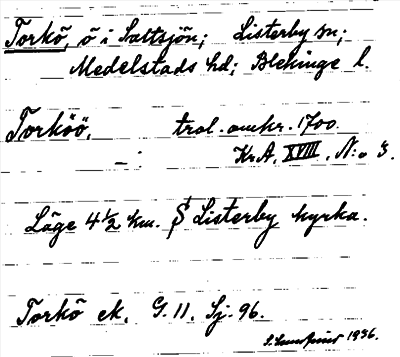 Torkö, ö i Saltsjön; Listerby sn;
Medelstads hd; Blekinge l.
Torköö, trol. omkr. 1700.
Kr.A. XVIII. N:o 3.
Läge 4½ km. S Listerby kyrka.
Torkö ek. G. 11. Sj. 96.
1936.